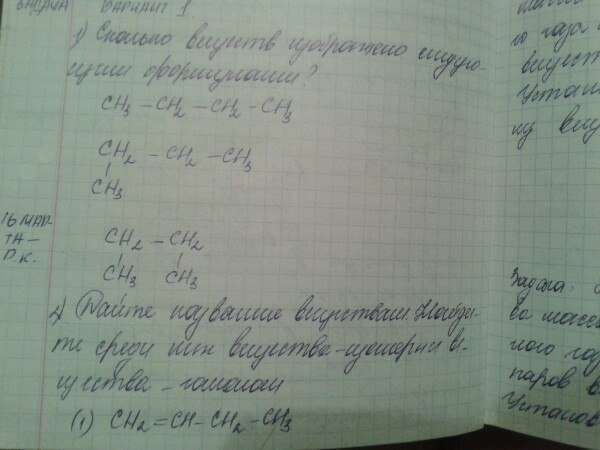 ВАРИАНТ 1
1) Сколько веществ изображено следую-
щими формулами?
CH3 – CH2 – CH2 – CH3
CH2 – CH2 – CH3
CH3
CH2 – CH2
CH3 CH3
16 МАР
ТА –
П.К.
2) Дайте название веществам. Найди-
те среди них вещества-изомеры и ве-
щества – гомологи
(1) CH2 = CH – CH2 – CH3
го газа
вещест
Устан
Задача:
паров в
Установ